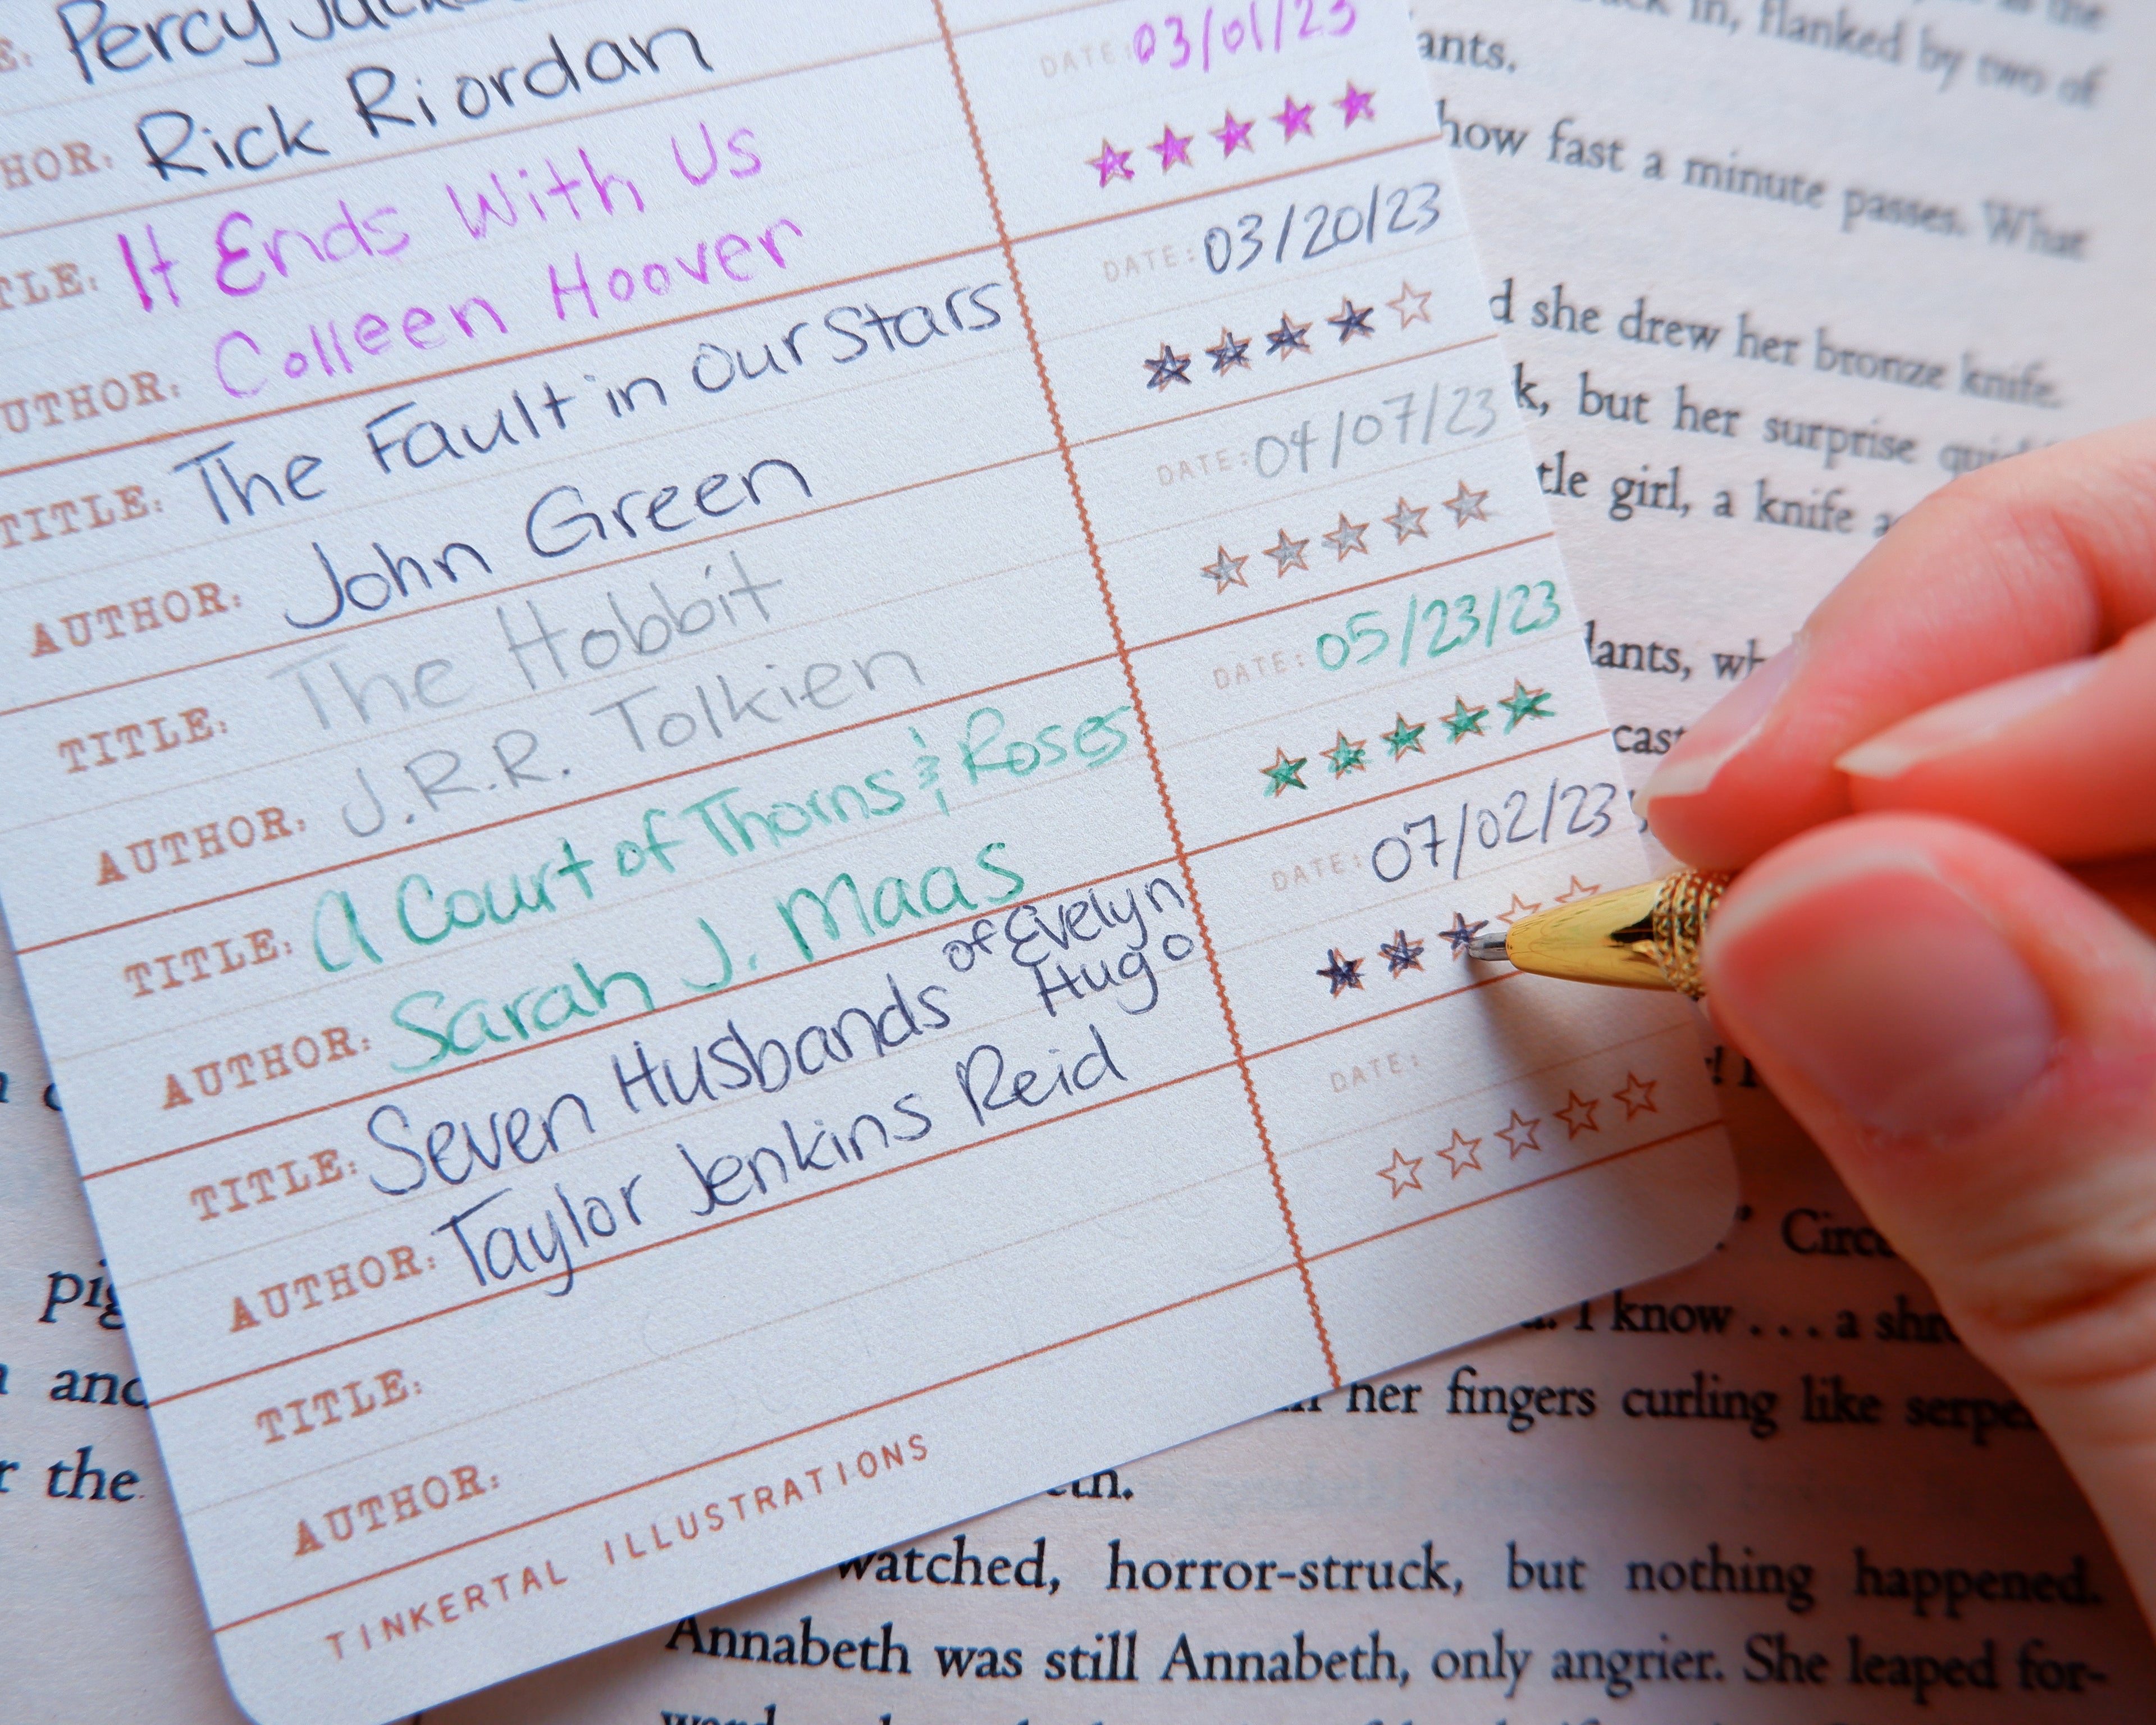 Percy
Rick Riordan
DATE: 03/01/23
TITLE: It Ends With Us
AUTHOR: Colleen Hoover
DATE: 03/20/23
TITLE: The Fault in Our Stars
AUTHOR: John Green
DATE: 04/07/23
TITLE: The Hobbit
AUTHOR: J.R.R. Tolkien
DATE: 05/23/23
TITLE: A Court of Thorns & Roses
AUTHOR: Sarah J. Maas
DATE: 07/02/23
TITLE: Seven Husbands of Evelyn Hugo
AUTHOR: Taylor Jenkins Reid
DATE:
TITLE:
AUTHOR:
TINKERTAL ILLUSTRATIONS
in, flanked by two of
how fast a minute passes. What
she drew her bronze knife.
but her surprise
girl, a knife
I know . . . a
her fingers curling like
watched, horror-struck, but nothing happened.
Annabeth was still Annabeth, only angrier. She leaped for-
and
the